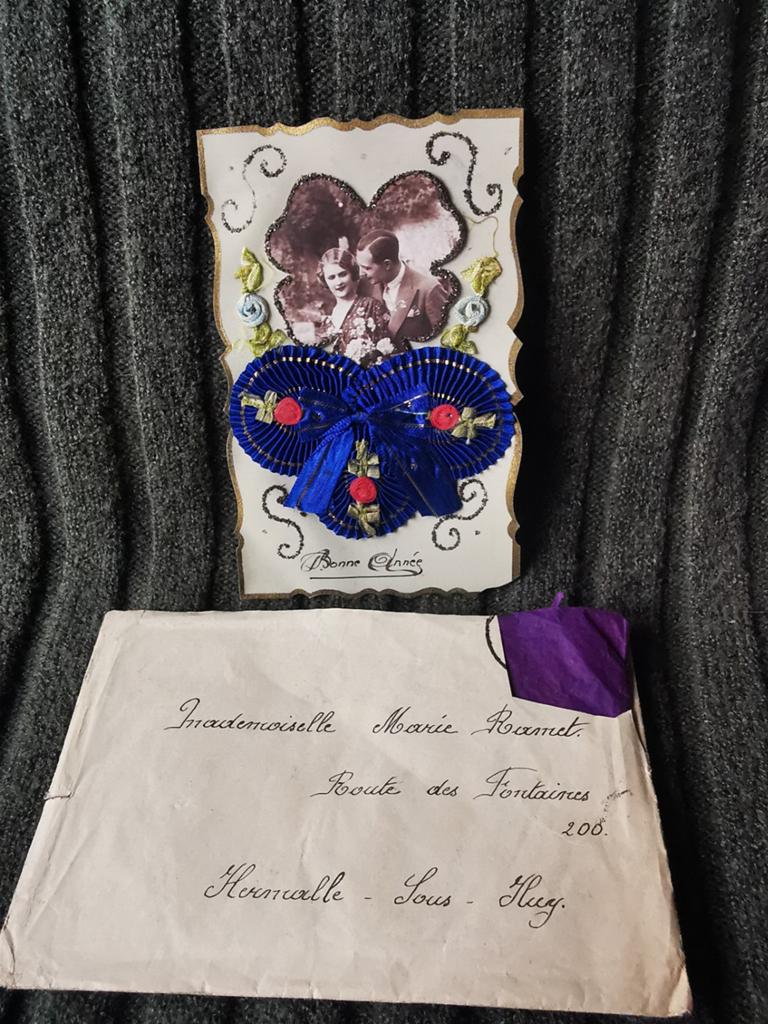 Bonne Année
Mademoiselle Marie Ramet.
Route des Fontaines
200.
Hermalle - Sous - Huy.